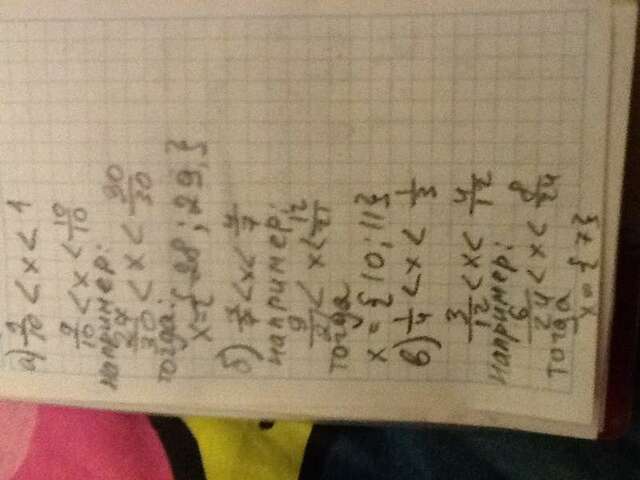 а) 9/10 < x < 1
9/10 < x < 10/10
например:
27/30 < x < 30/30
тогда:
x = {28; 29;}
б) 3/7 < x < 4/7
например:
9/21 < x < 12/21
тогда
x = {10; 11}
в) 1/4 < x < 1/3
3/12 < x < 4/12
например:
6/24 < x < 8/24
тогда
x = {7}